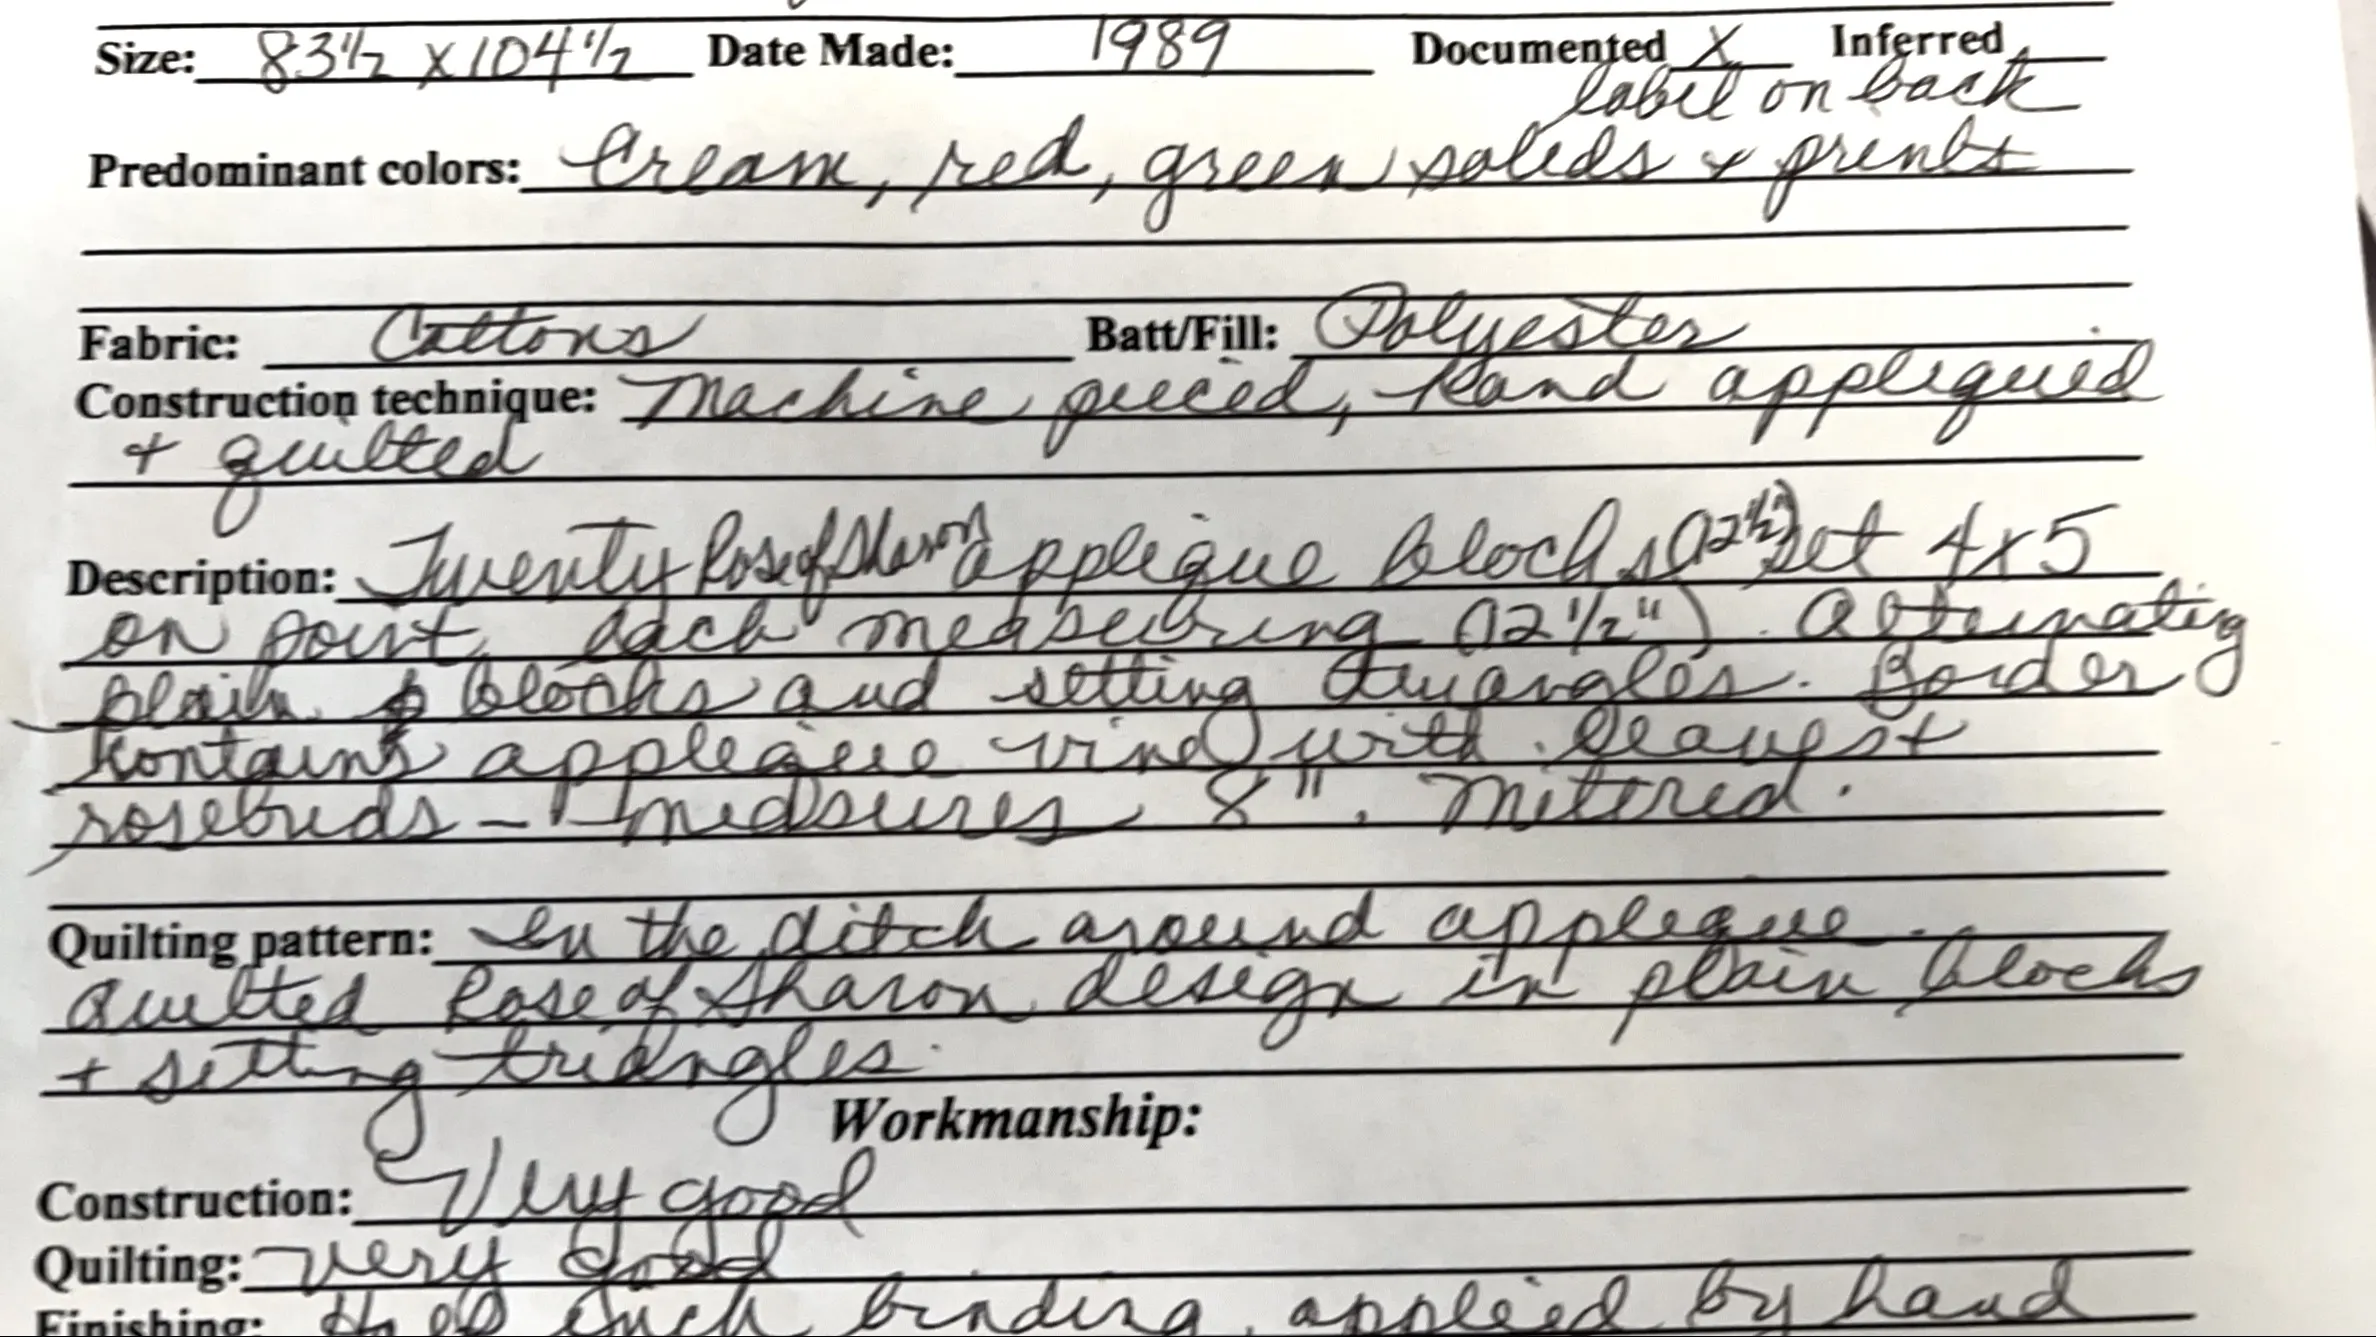 Size: 83 1/2 x 104 1/2 Date Made: 1989 Documented X Inferred
label on back
Predominant colors: Cream, red, green solids + prints
Fabric: Cottons Batt/Fill: Polyester
Construction technique: Machine pieced, hand appliquéd
+ quilted
Description: Twenty Rose of Sharon applique blocks (12 1/2") set 4x5
on point, each measuring (12 1/2"). Alternating
plain blocks and setting triangles. Border
contains applique vine with leaves +
rosebuds - measures 8". Mitered.
Quilting pattern: In the ditch around applique.
Quilted Rose of Sharon design in plain blocks
+ setting triangles.
Workmanship:
Construction: Very good
Quilting: Very good
Finishing: Half inch binding, applied by hand